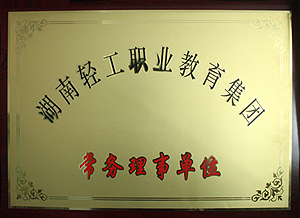 湖南轻工职业教育集团
常务理事单位